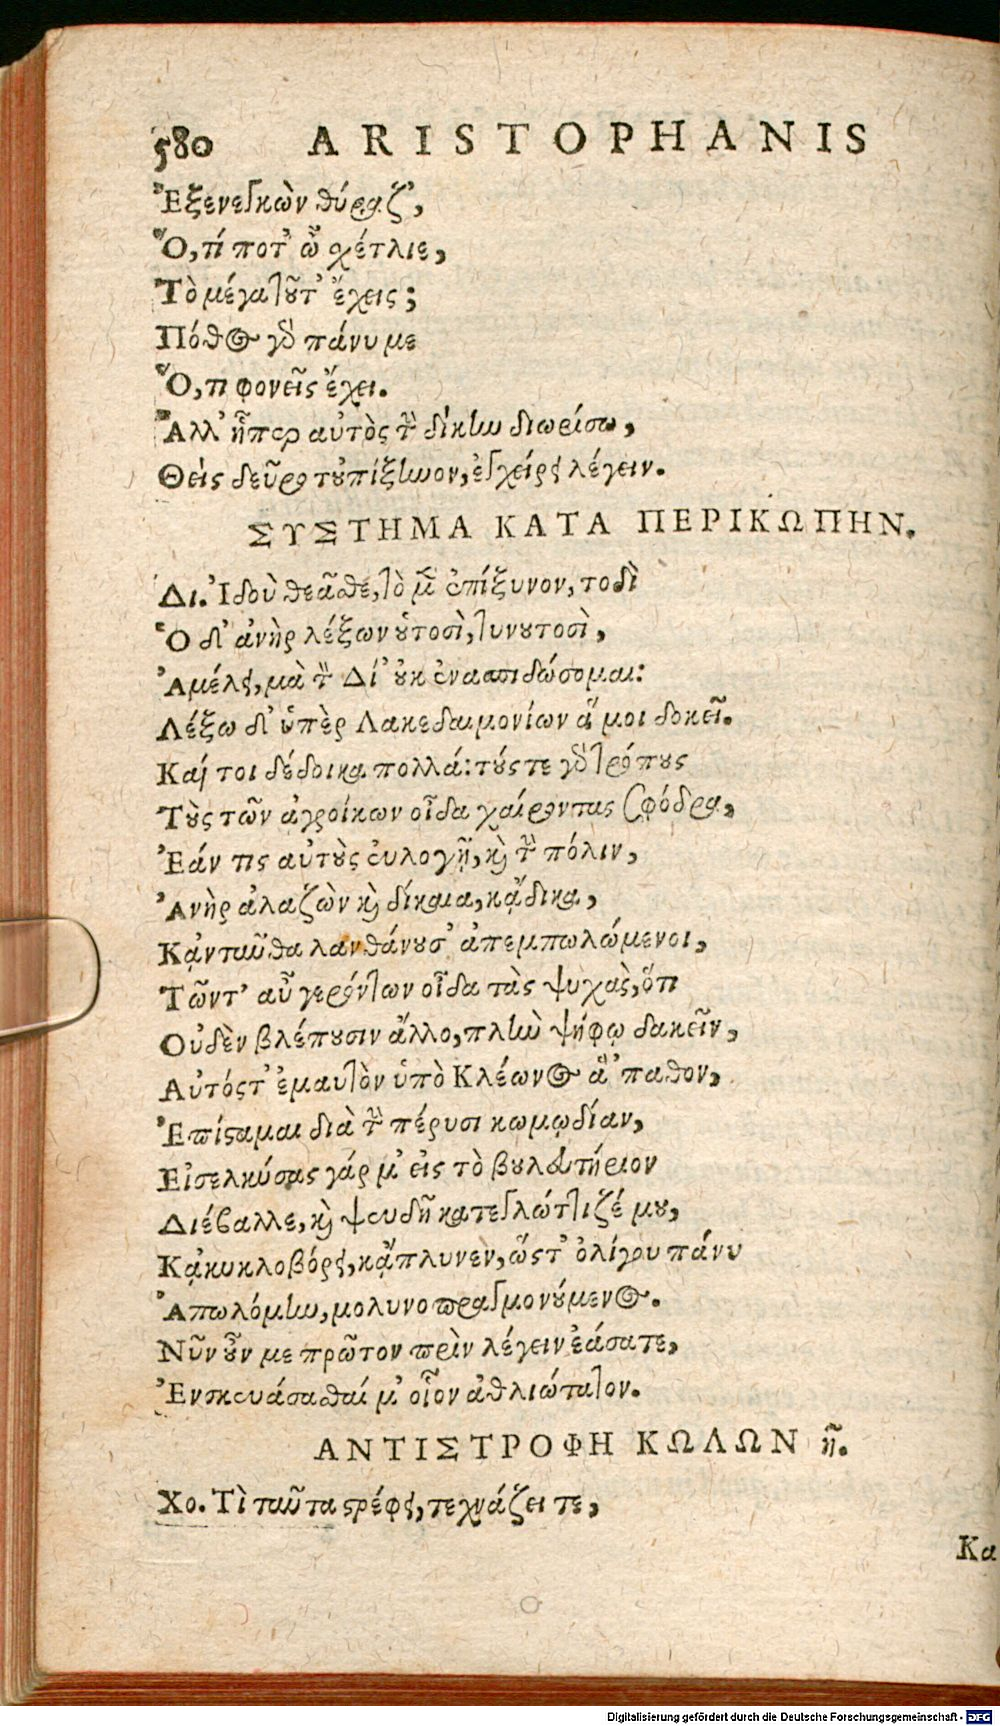 580 ARISTOPHANIS
Ἐξενεγκὼν θύραζ',
Ὅ,τί ποτ' ὦ χέτλιε,
Τὸ μέγα τοῦτ' ἔχεις;
Πόθος γὸ πάνυ με
Ὅ,τι φονεῖς ἔχει.
Ἀλλ' ᾗπερ αὐτὸς τὴν δίκην διωρίσω,
Θεὶς δεῦρο τοὐπίξηνον, ἐγχείρει λέγειν.
ΣΥΣΤΗΜΑ ΚΑΤΑ ΠΕΡΙΚΩΠΗΝ.
Δι. Ἰδοὺ θεᾶσθε, τὸ μὲν ἐπίξυνον, τοδὶ
Ὁ δ' ἀνὴρ λέξων οὑτοσὶ, τυνουτοσὶ,
Ἀμέλει, μὰ τὸν Δί' οὐκ ἐνασπιδώσομαι:
Λέξω δ' ὑπὲρ Λακεδαιμονίων ἅ μοι δοκεῖ.
Καί τοι δέδοικα πολλά: τούς τε γὸ τρόπους
Τοὺς τῶν ἀγροίκων οἶδα χαίροντας σφόδρα,
Ἐάν τις αὐτοὺς εὐλογῇ, καὶ τὴν πόλιν,
Ἀνὴρ ἀλαζὼν καὶ δίκαια, κᾄδικα,
Κᾀνταῦθα λανθάνουσ' ἀπεμπωλώμενοι,
Τῶντ' αὖ γερόντων οἶδα τὰς ψυχὰς, ὅτι
Οὐδὲν βλέπουσιν ἄλλο, πλὴν ψήφῳ δακεῖν,
Αὐτόςτ' ἐμαυτὸν ὑπὸ Κλέωνος ἅ 'παθον,
Ἐπίσταμαι διὰ τὴν πέρυσι κωμῳδίαν,
Εἰσελκύσας γάρ μ' εἰς τὸ βουλευτήριον
Διέβαλλε, καὶ ψευδῆ κατεγλώττιζέ μου,
Κᾀκυκλοβόρει, κᾄπλυνεν, ὥςτ' ὀλίγου πάνυ
Ἀπωλόμην, μολυνοπραγμονούμενος.
Νῦν οὖν με πρῶτον πρὶν λέγειν ἐάσατε,
Ἐνσκευάσασθαί μ' οἷον ἀθλιώτατον.
ΑΝΤΙΣΤΡΟΦΗ ΚΩΛΩΝ η̃.
Χο. Τὶ ταῦτα στρέφει, τεχνάζει τε,
Κα
Digitalisierung gefördert durch die Deutsche Forschungsgemeinschaft - DFG